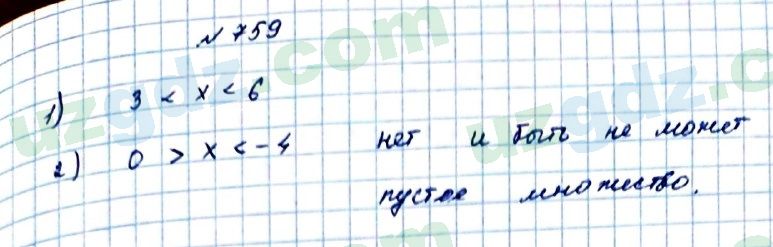 № 759
1) 3 < x < 6
2) 0 > x < -4 нет и быть не может
пустое множество.
uzgdz.com
uzgdz.com
uzgdz.c